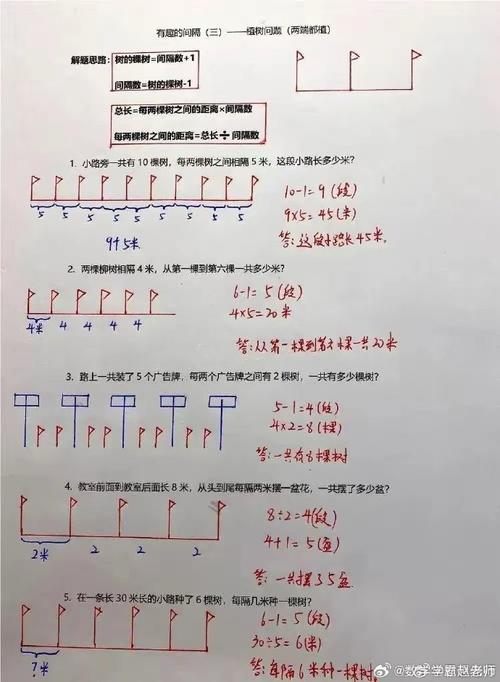 有趣的间隔（三）——植树问题（两端都植）
解题思路：
树的棵树=间隔数+1
间隔数=树的棵树-1
总长=每两棵树之间的距离×间隔数
每两棵树之间的距离=总长÷间隔数
1. 小路旁一共有10棵树，每两棵树之间相隔5米，这段小路长多少米？
5 5 5 5 5 5 5 5 5
9个5米
10-1=9（段）
9×5=45（米）
答：这段小路长45米。
2. 两棵柳树相隔4米，从第一棵到第六棵一共多少米？
4米 4 4 4 4
6-1=5（段）
4×5=20米
答：从第一棵到第六棵一共20米
3. 路上一共装了5个广告牌，每两个广告牌之间有2棵树，一共有多少棵树？
5-1=4（段）
4×2=8（棵）
答：一共有8棵树
4. 教室前面到教室后面长8米，从头到尾每隔两米摆一盆花，一共摆了多少盆？
2米 2 2 2
8÷2=4（段）
4+1=5（盆）
答：一共摆了5盆
5. 在一条长30米长的小路种了6棵树，每隔几米种一棵树？
?米
6-1=5（段）
30÷5=6（米）
答：每隔6米种一棵树。
@数学学霸赵老师